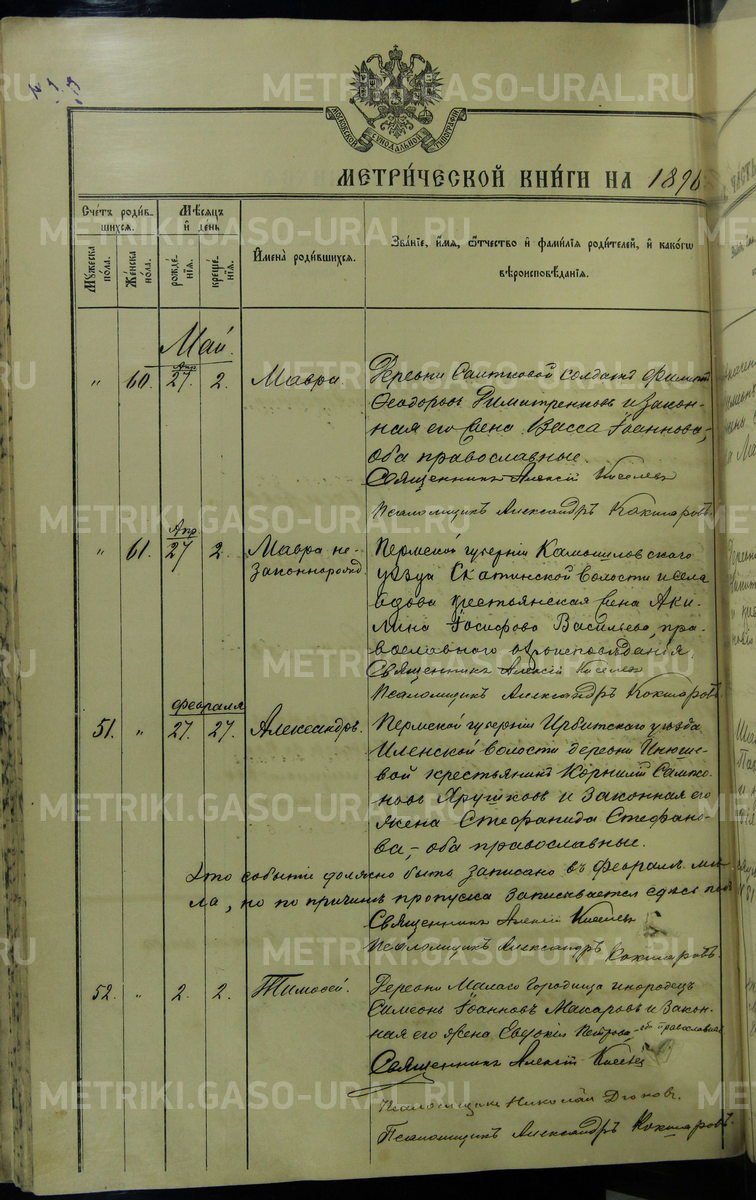 METRIKI.GASO-URAL.RU
МОСКОВСКОЙ СѴНОДАЛЬНОЙ ТИПОГРАФІИ
МЕТРИ́ЧЕСКОЙ КНИ́ГИ НА 1896
Сче́тъ роди́вшихся.
Мꙋ́жеска по́ла.
Же́нска по́ла.
Мѣ́сяцъ и҆ де́нь
рожде́нїѧ.
креще́нїѧ.
И҆мена̀ роди́вшихсѧ.
Зва́нїе, и҆́мѧ, ѻ҆́тчество и҆ фами́лїѧ роди́телей, и҆ како́гѡ
вѣроисповѣ́данїѧ.
Май.
Апр
„ 60. 27. 2. Мавра. Деревни солдатъ Филиппъ
Ѳеодоровъ Димитренковъ и закон-
ная его жена Васса Іоаннова,
оба православные.
Священникъ Алексій Киселевъ
Псаломщикъ Александръ Кокшаровъ.
Апр
„ 61. 27 2. Мавра не- Пермской губерніи Камышловскаго
законнорожд. уѣзда Скатинской волости и села
вдова крестьянская жена Аки-
лина Іосифова Васильева, пра-
вославнаго вѣроисповѣданія.
Священникъ Алексій Киселевъ
Псаломщикъ Александръ Кокшаровъ
Февраля
51. „ 27. 27. Александръ. Пермской губерніи Ирбитскаго уѣзда
Иленской волости деревни
крестьянинъ Корнилій Сампсо-
новъ Яружковъ и законная его
жена Стефанида Стефано-
ва, – оба православные.
Это событіе должно быть записано въ февралѣ мѣ-
ла, но по причинѣ пропуска записывается здѣсь
Священникъ Алексій Киселевъ
Псаломщикъ Александръ Кокшаровъ.
52. „ 2. 2. Тимофей. Деревни Малаго Городища инородецъ
Симеонъ Іоанновъ Макаровъ и закон-
ная его жена Евдокія Петрова – оба православные
Священникъ Алексій Киселевъ
Псаломщикъ Николай
Псаломщикъ Александръ Кокшаровъ.